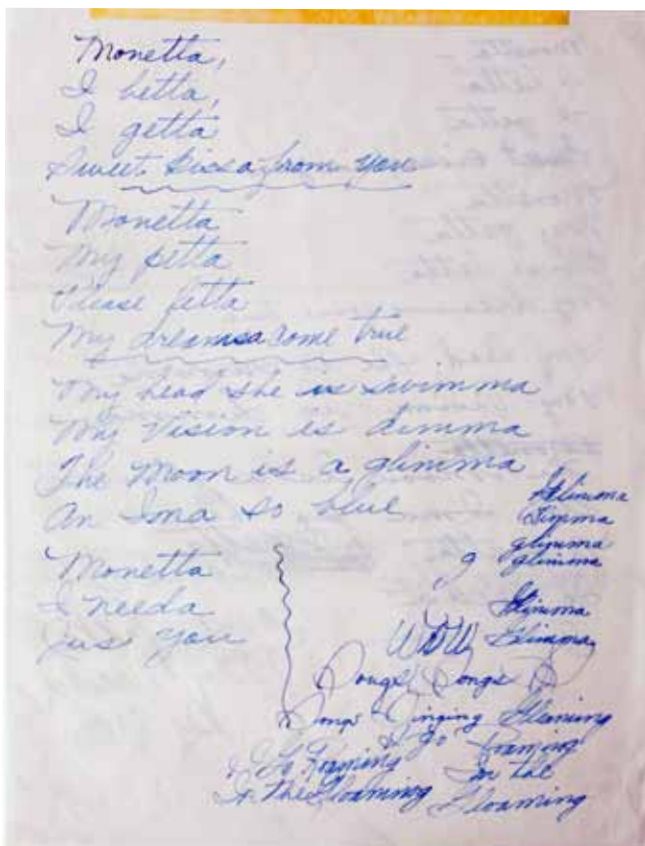 Monetta,
I betta,
I getta
Sweet kissa from you
Monetta
My petta
Please letta
My dreamsa come true
My head she is swimma
My Vision is dimma
The Moon is a glimma
An Ima so blue
Monetta
I needa
jus you
Glimma
Dimma
glimma
g glimma
Glimma
Glimma
Songs Songs S
Songs Singing Gleaming
& go Roaming
I Go Roaming In the
In The Gloaming Gloaming